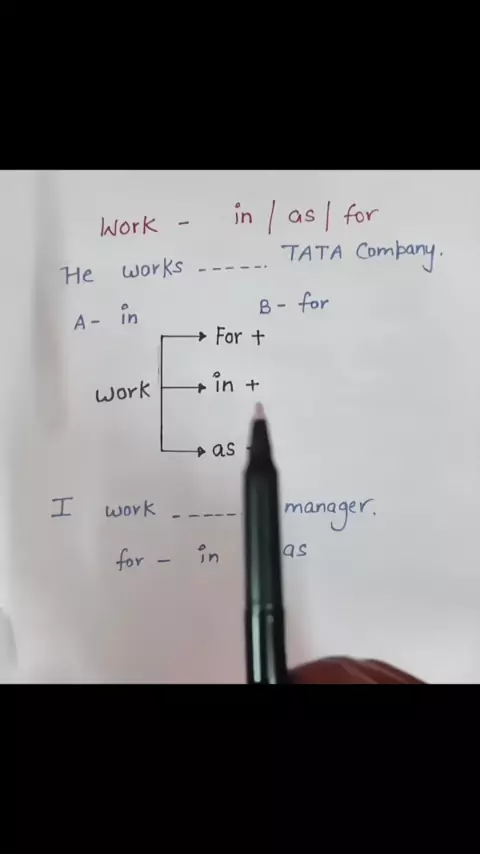 Work - in / as / for
He works ------. TATA Company.
A - in B - for
For +
work in +
as
I work ----- manager.
for - in as